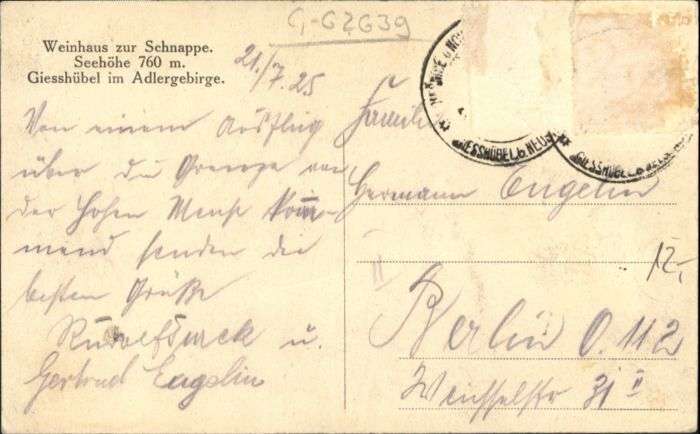 G-G2G39
Weinhaus zur Schnappe.
Seehöhe 760 m.
Giesshübel im Adlergebirge.
21./7.25
Von einem Ausflug
über die Grenze von
der Hohen Mense kom-
mend senden die
besten Grüße
Rudolf u.
Gertrud Engelin
Familie
Hermann Engelin
Berlin O. 112
31 II
12,-
GIESSHÜBEL b. NEU
GIESSHÜBEL b.